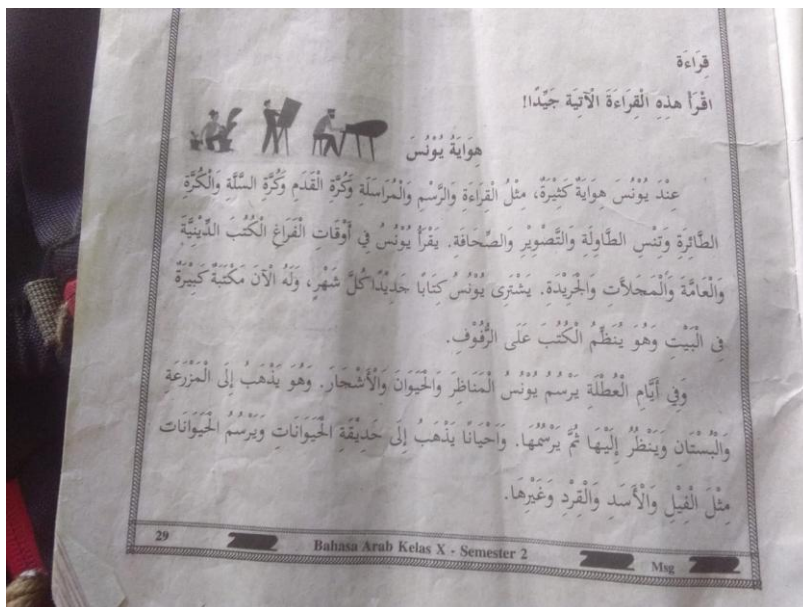 قِرَاءَة
اقْرَأْ هذِهِ الْقِرَاءَةَ الْآتِيَة جَيِّدًا!
هِوَايَةُ يُوْنُسَ
عِنْدَ يُوْنُسَ هِوَايَةٌ كَثِيْرَةٌ، مِثْلُ الْقِرَاءَةِ وَالرَّسْمِ وَالْمُرَاسَلَةِ وَكُرَةِ الْقَدَمِ وَكُرَةِ السَّلَّةِ وَالْكُرَةِ
الطَّائِرَةِ وَتِنِسِ الطَّاوِلَةِ والتَّصْوِيْرِ وَالصِّحَافَةِ. يَقْرَأُ يُوْنُسُ فِي أَوْقَاتِ الْفَرَاغِ الْكُتُبَ الدِّيْنِيَّةَ
وَالْعَامَّةَ وَالْمَجَلاَّتِ وَالْجَرِيْدَةِ. يَشْتَرِى يُوْنُسُ كِتَابًا جَدِيْدًا كُلَّ شَهْرٍ، وَلَهُ الْآنَ مَكْتَبَةٌ كَبِيْرَةٌ
فِى الْبَيْتِ وَهُوَ يُنَظِّمُ الْكُتُبَ عَلَى الرُّفُوْفِ.
وَفِي أَيَّامِ الْعُطْلَةِ يَرْسُمُ يُوْنُسُ الْمَنَاظِرَ وَالْحَيَوَانَ وَالْأَشْجَارَ. وَهُوَ يَذْهَبُ إِلَى الْمَزْرَعَةِ
وَالْبُسْتَانِ وَيَنْظُرُ إِلَيْهَا ثُمَّ يَرْسُمُهَا. وَاَحْيَانًا يَذْهَبُ إِلَى حَدِيْقَةِ الْحَيَوَانَاتِ وَيَرْسُمُ الْحَيَوَانَات
مِثْلَ الْفِيْلِ وَالْأَسَدِ وَالْقِرْدِ وَغَيْرِهَا.
29 Bahasa Arab Kelas X - Semester 2 Msg